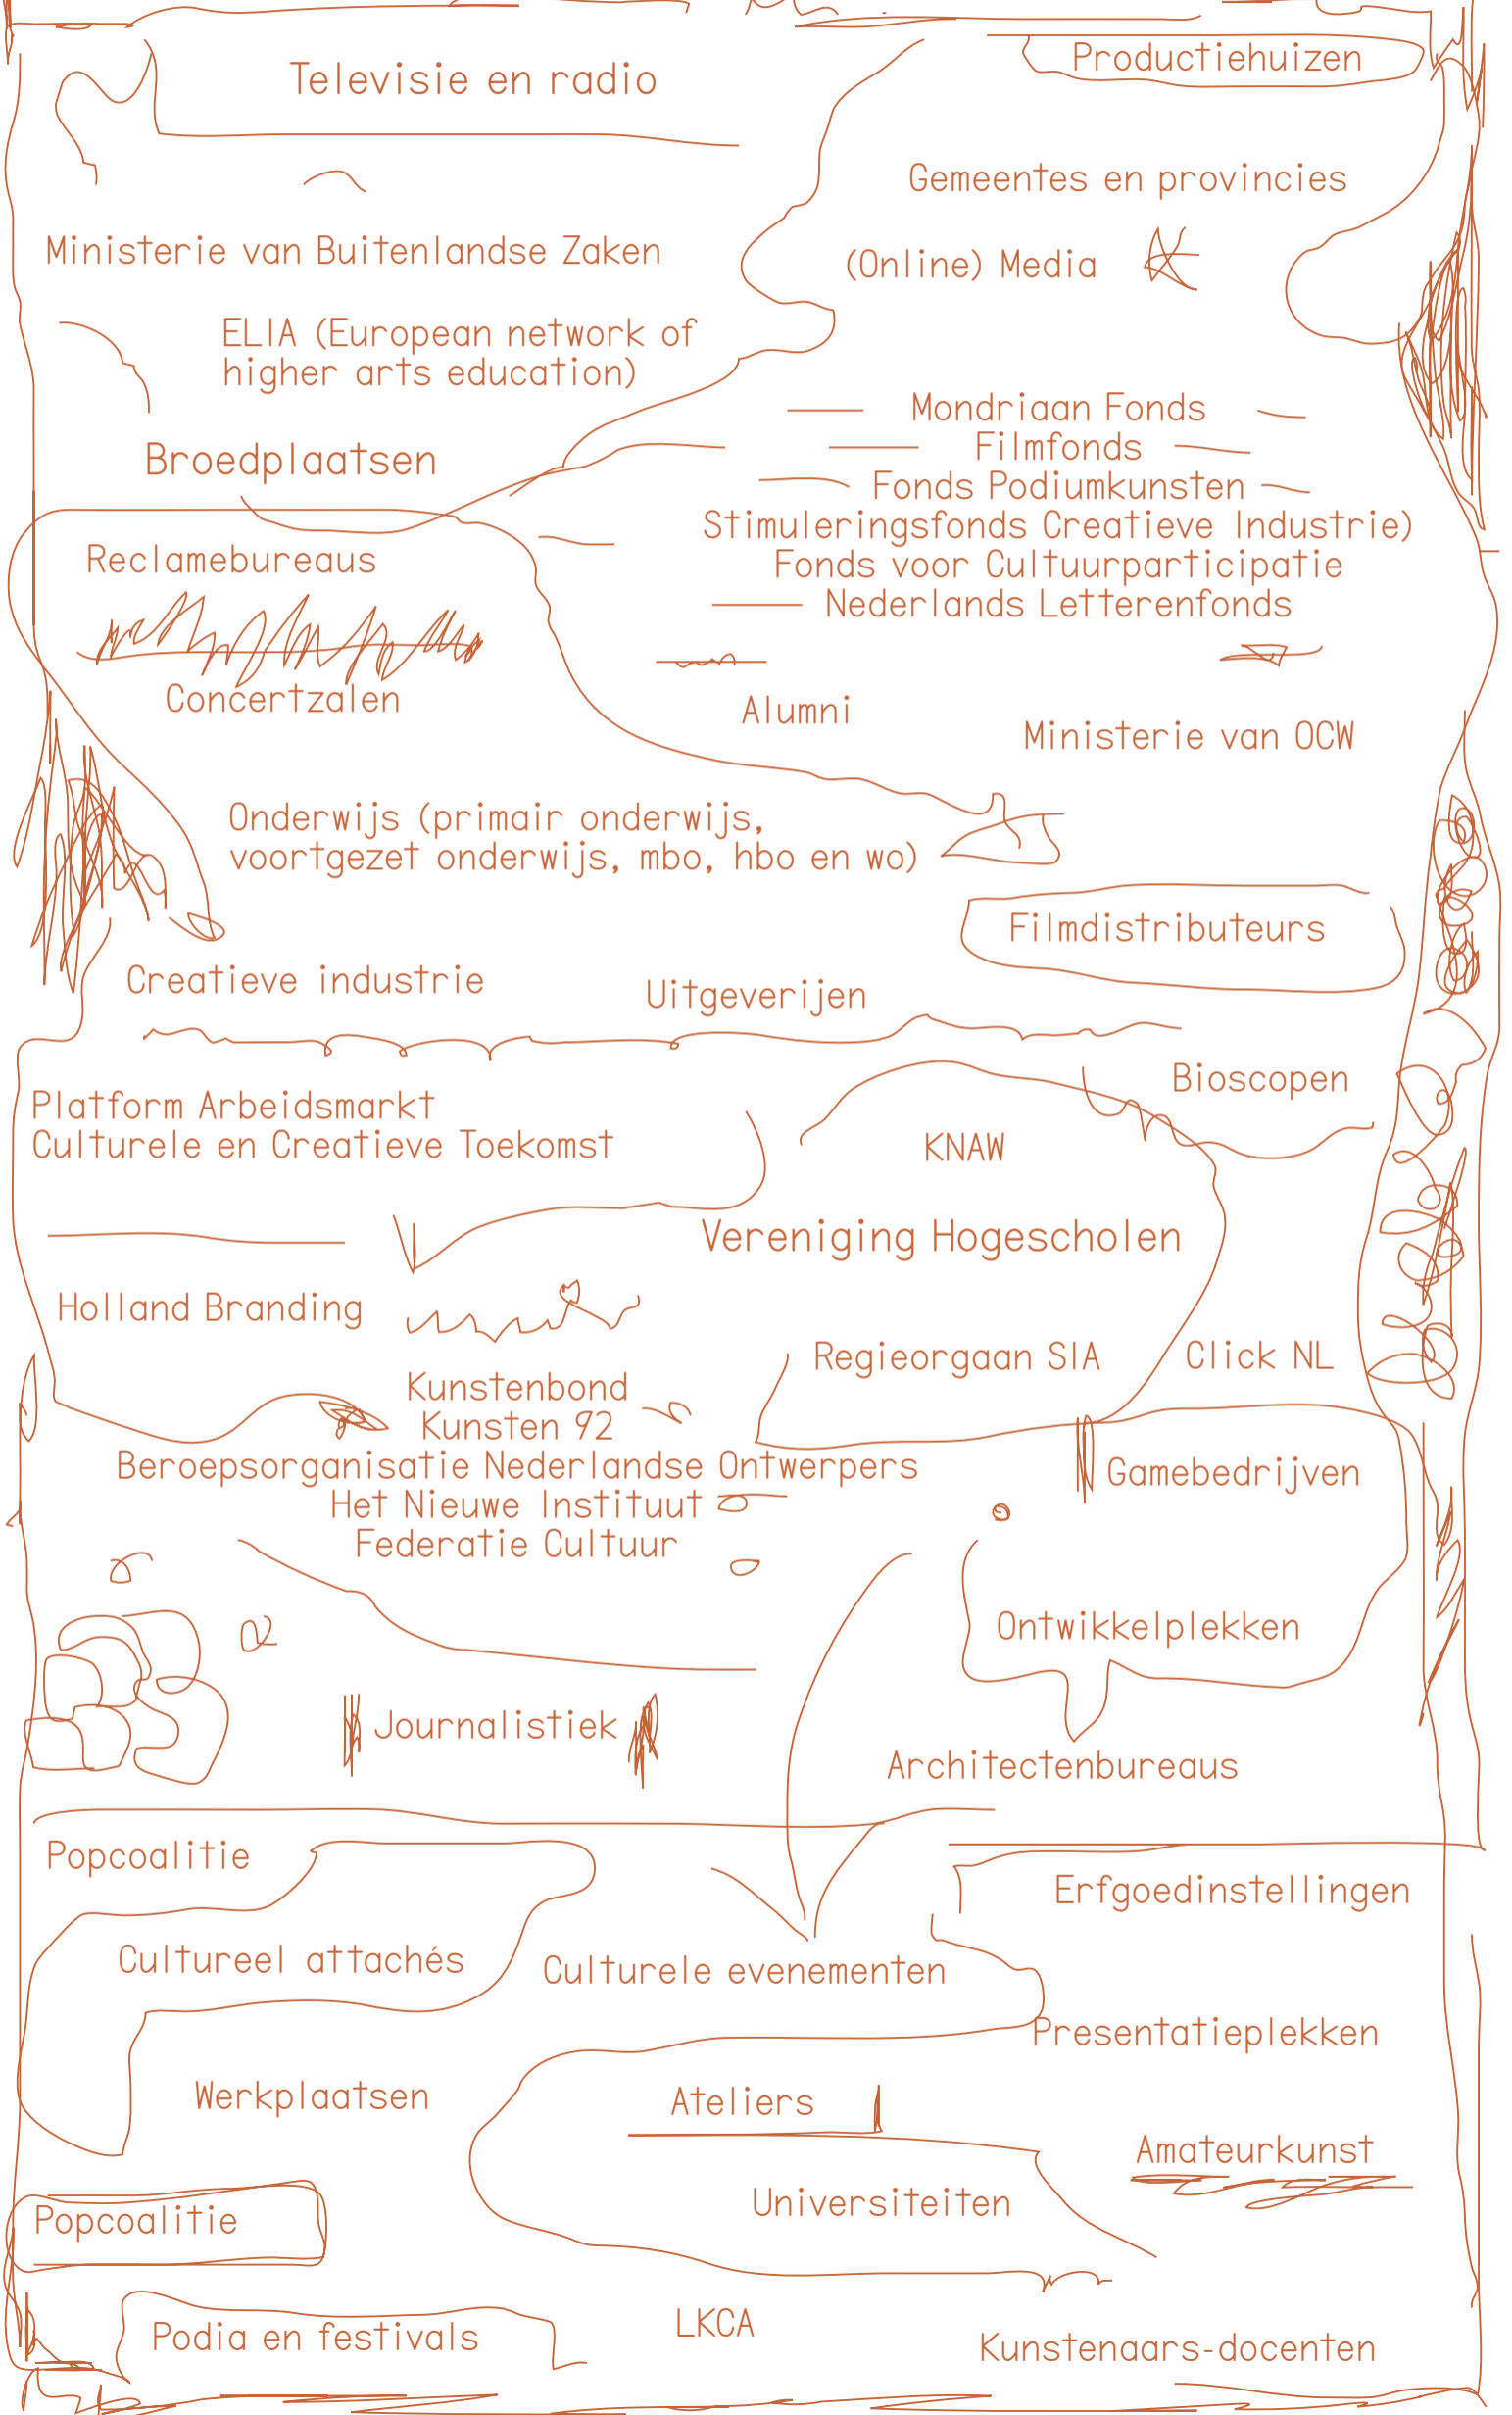 Productiehuizen
Televisie en radio
Gemeentes en provincies
Ministerie van Buitenlandse Zaken
(Online) Media
ELIA (European network of
higher arts education)
Mondriaan Fonds
Filmfonds
Broedplaatsen
Fonds Podiumkunsten
Stimuleringsfonds Creatieve Industrie)
Reclamebureaus
Fonds voor Cultuurparticipatie
Nederlands Letterenfonds
Concertzalen
Alumni
Ministerie van OCW
Onderwijs (primair onderwijs,
voortgezet onderwijs, mbo, hbo en wo)
Filmdistributeurs
Creatieve industrie
Uitgeverijen
Bioscopen
Platform Arbeidsmarkt
Culturele en Creatieve Toekomst
KNAW
Vereniging Hogescholen
Holland Branding
Regieorgaan SIA
Click NL
Kunstenbond
Kunsten 92
Beroepsorganisatie Nederlandse Ontwerpers
Gamebedrijven
Het Nieuwe Instituut
Federatie Cultuur
Ontwikkelplekken
Journalistiek
Architectenbureaus
Popcoalitie
Erfgoedinstellingen
Cultureel attachés
Culturele evenementen
Presentatieplekken
Werkplaatsen
Ateliers
Amateurkunst
Universiteiten
Popcoalitie
LKCA
Podia en festivals
Kunstenaars-docenten